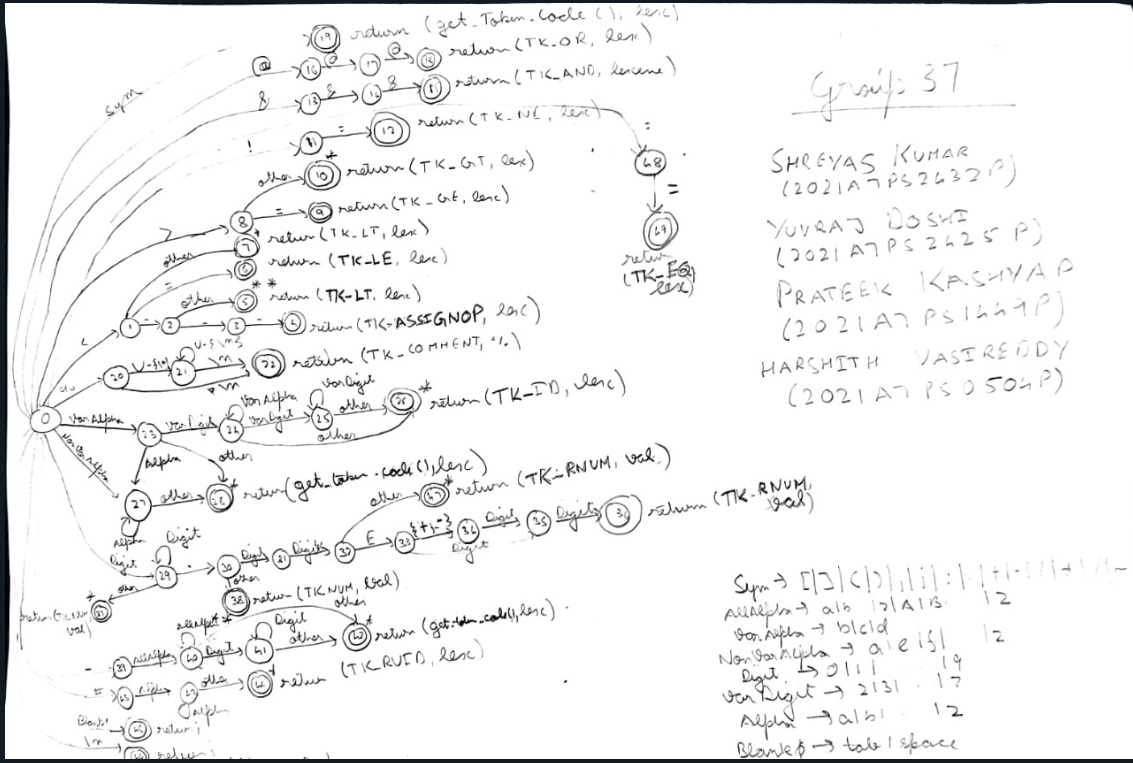 Group: 37
SHREYAS KUMAR
(2021A7PS2432P)
YUVRAJ DOSHI
(2021A7PS2425P)
PRATEEK KASHYAP
(2021A7PS1449P)
HARSHITH VASIREDDY
(2021A7PS0504P)
19 return (get_Token_Code (), lexc)
Sym
@ 16 @ 17 @ 18 return (TK_OR, lex)
& 13 & & return (TK_AND, lexeme)
! 11 = 12 return (TK_NE, lex)
= 48
=
49
return
(TK_EQ,
lex)
other 10 * return (TK_GT, lex)
> 8 = 9 return (TK_GE, lex)
other 7 * return (TK_LT, lex)
= 6 return (TK_LE, lex)
other 5 ** return (TK_LT, lex)
< 1 - 2 - 3 - 4 return (TK_ASSIGNOP, lexc)
% 20 21 \n 22 return (TK_COMMENT, %)
\n
0
VarAlpha 23 VarDigit 24 VarDigit 25 other 26 * return (TK_ID, lexc)
VarAlpha
VarDigit
other
Alpha
other
NonVarAlpha
27 other 28 * return (get_token_code (), lexc)
Alpha
Digit 29 . 30 Digit 31 Digit 32 E 33 {+,-} 34 Digit 35 Digit 36 return (TK_RNUM, val)
Digit
Digit
other 47 * return (TK_RNUM, val)
other 37 * return (TK_NUM, val)
other
38 ** return (TK_NUM, val)
_ 39 AllAlpha 40 Digit 41 other 42 * return (get_token_code(), lexc)
AllAlpha
Digit
other
# 43 Alpha other * return (TK_RUID, lexc)
Alpha
Blank return;
\n return;
Sym →
AllAlpha → a|b |z|A|B. |Z
VarAlpha → b|c|d
NonVarAlpha → a|e|f| |z
Digit → 0|1| . |9
VarDigit → 2|3| . |7
Alpha → a|b| . |z
Blank → tab | space